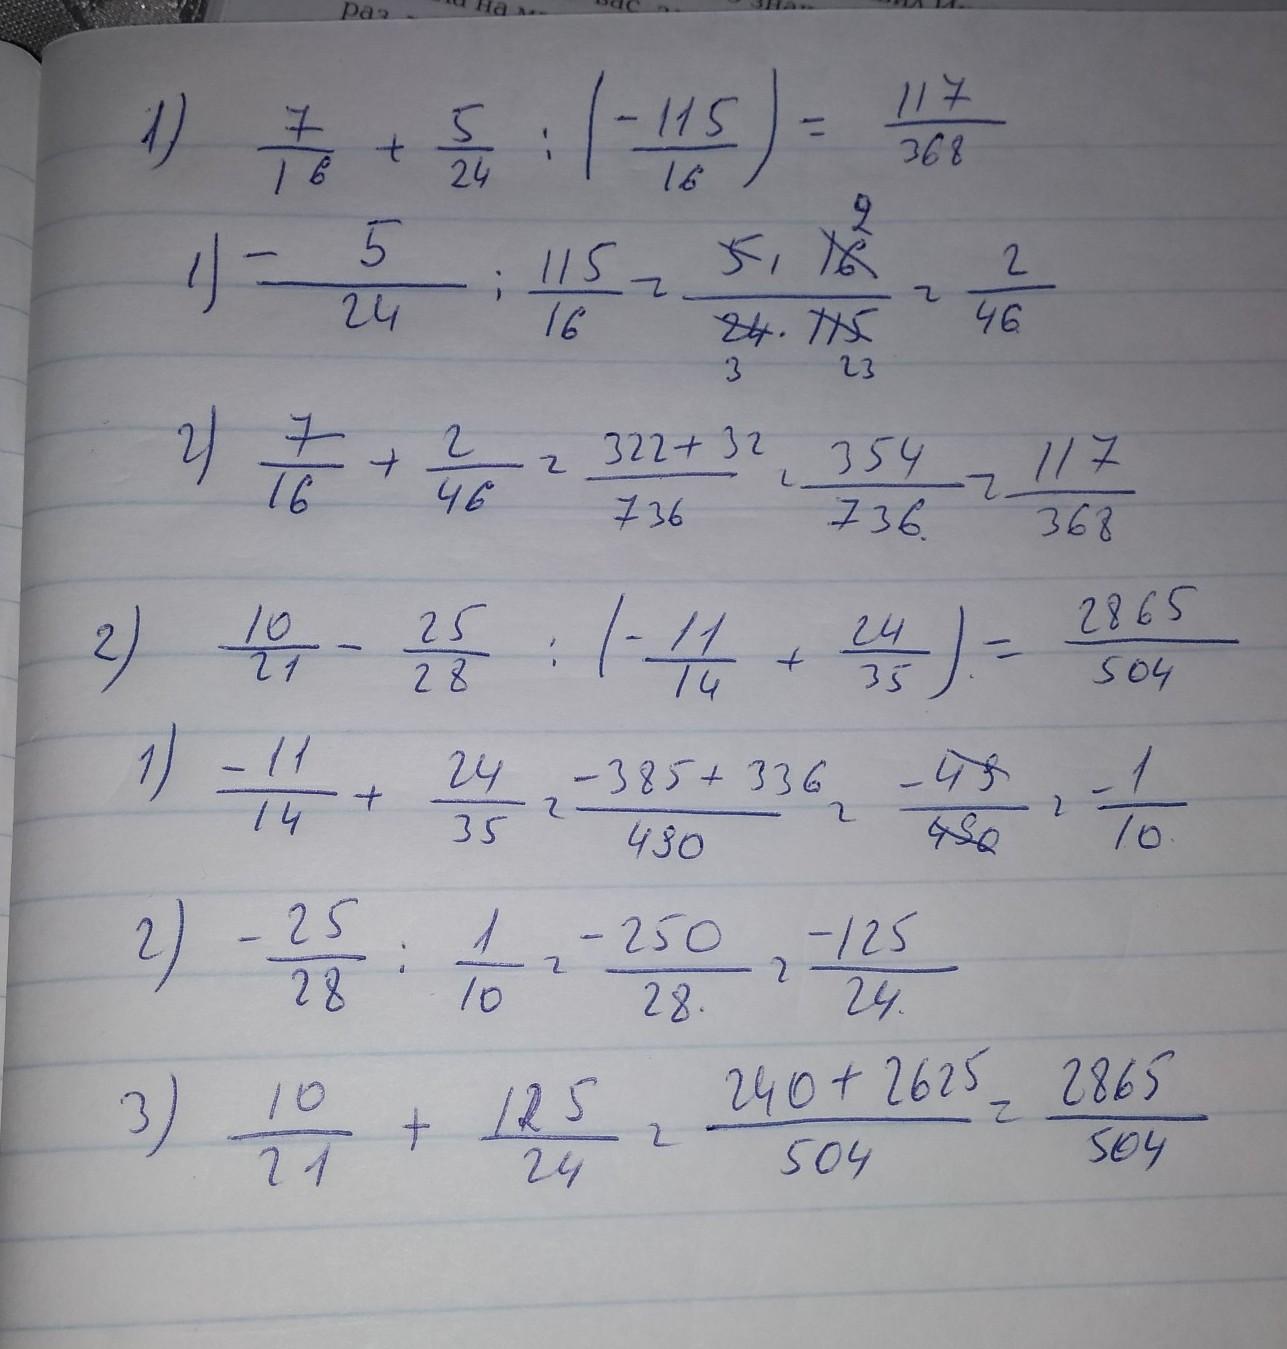 1) 7/16 + 5/24 : (-115/16) = 117/368
1) - 5/24 : 115/16 = 5 · 16 2 / 24 · 115 3 23 = 2/46
2) 7/16 + 2/46 = 322+32/736 = 354/736 = 117/368
2) 10/21 - 25/28 : (-11/14 + 24/35) = 2865/504
1) -11/14 + 24/35 = -385+336/490 = -49/490 = -1/10
2) -25/28 : 1/10 = -250/28 = -125/24
3) 10/21 + 125/24 = 240+2625/504 = 2865/504